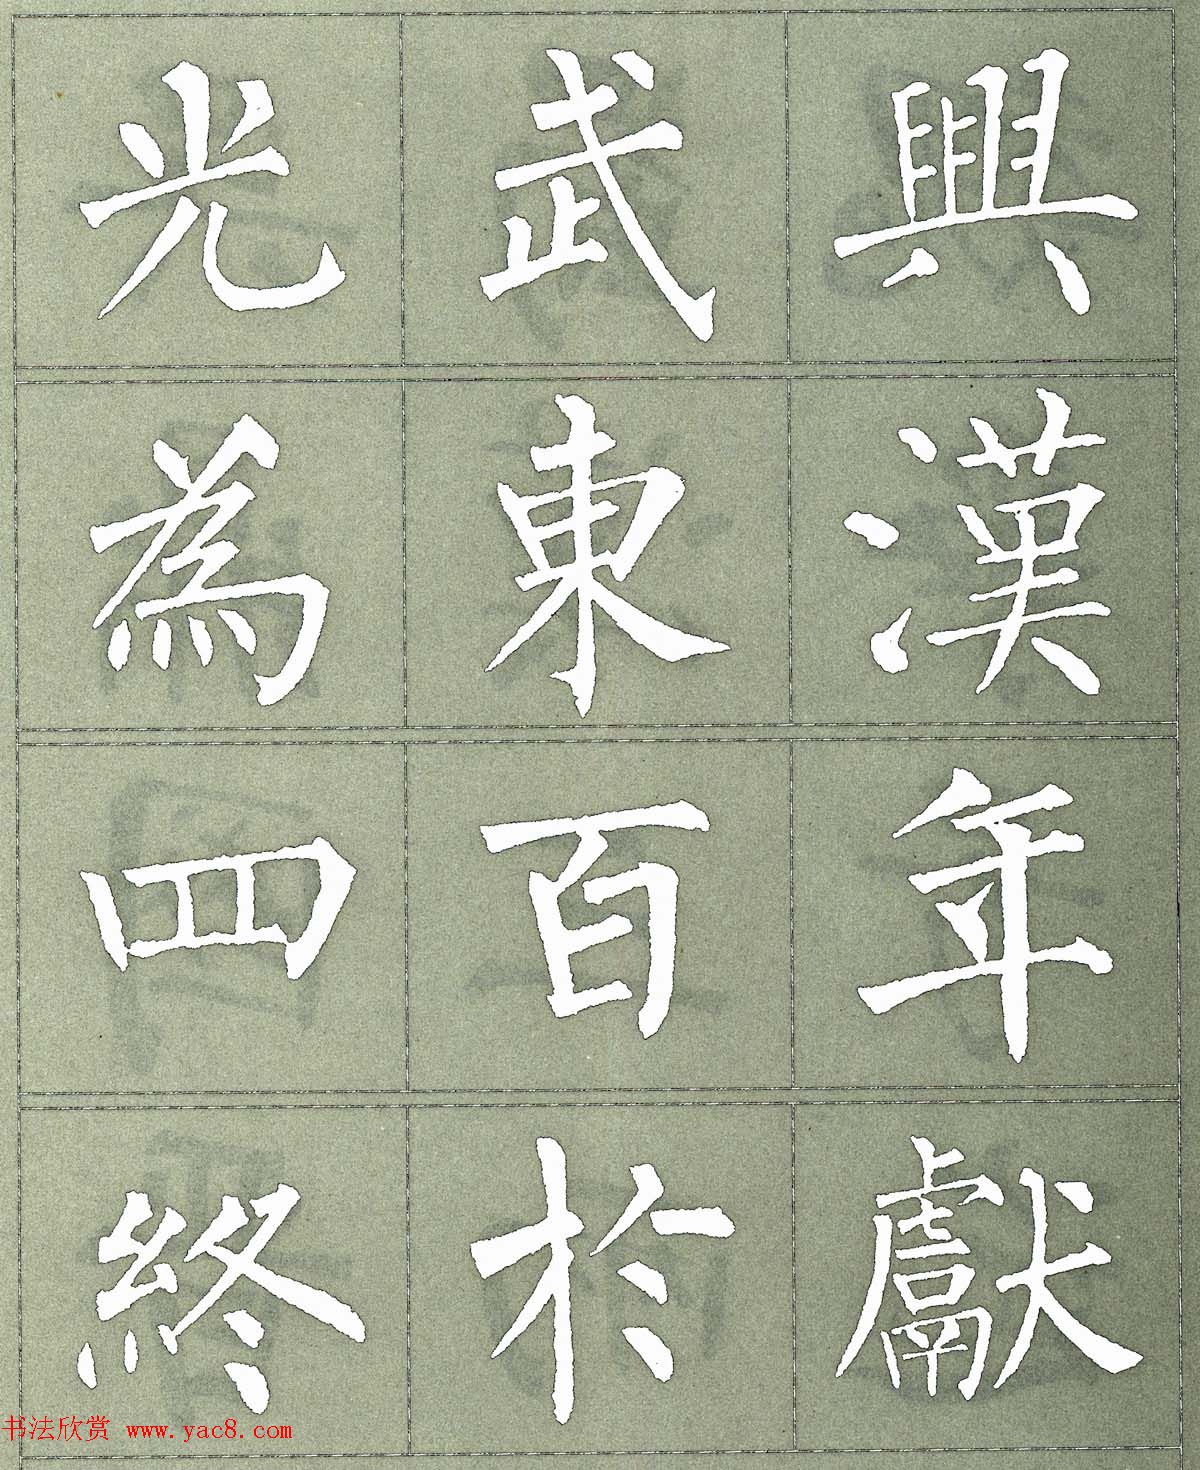 光武興
為東漢
四百年
終於獻
书法欣赏 www.yac8.com